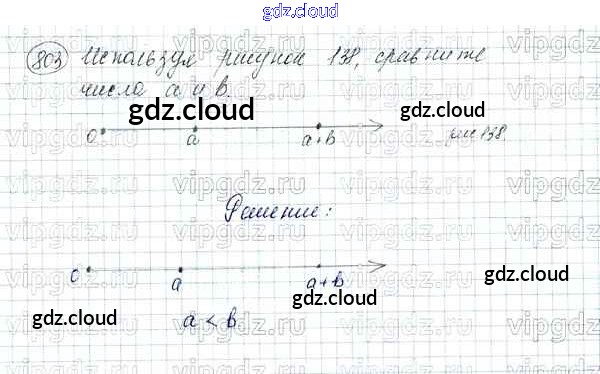 gdz.cloud
803 Используя рисунок 138, сравните
числа a и b.
gdz.cloud
gdz.cloud
0 a a+b рис 138.
vipgdz.ru vipgdz.ru vipgdz.ru
Решение:
0 a a+b
gdz.cloud
gdz.cloud
gdz.cloud
a < b.